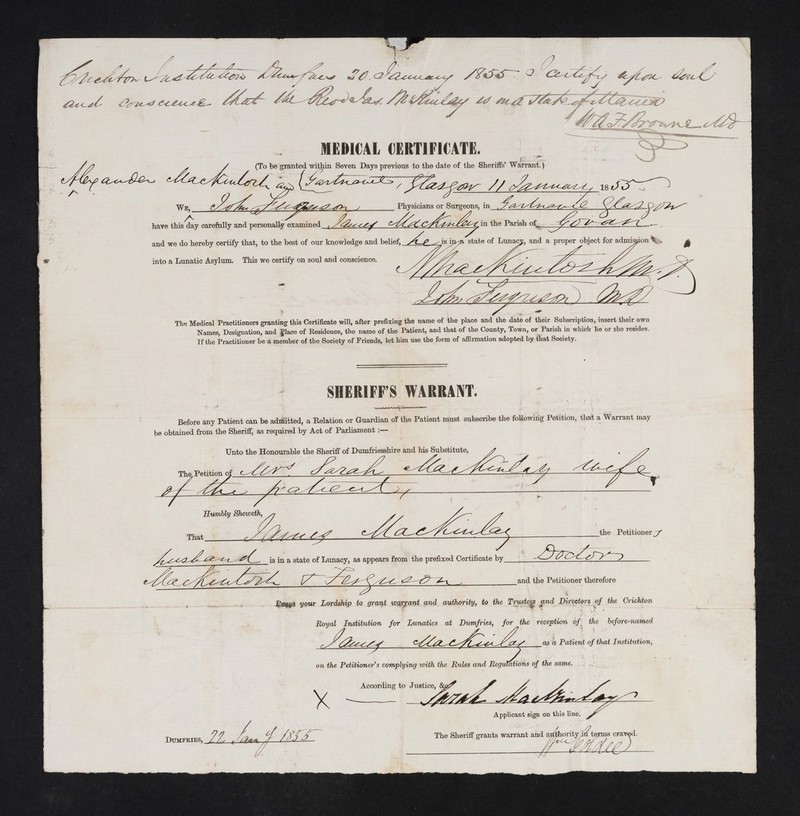 Crichton Institution Dumfries 20 January 1855. I certify upon soul
and conscience that the Revd Jas. McKinlay is in a state of Mania
W A F Browne MD
MEDICAL CERTIFICATE.
(To be granted within Seven Days previous to the date of the Sheriffs' Warrant.)
Alexander Mackintosh and Gartnavel, Glasgow 11 January 1855
We, John Ferguson Physicians or Surgeons, in Gartnavel Glasgow
have this day carefully and personally examined James MacKinlay in the Parish of Govan
and we do hereby certify that, to the best of our knowledge and belief, he is in a state of Lunacy, and a proper object for admission
into a Lunatic Asylum. This we certify on soul and conscience.
A Mackintosh M.D.
John Ferguson MD
The Medical Practitioners granting this Certificate will, after prefixing the name of the place and the date of their Subscription, insert their own
Names, Designation, and Place of Residence, the name of the Patient, and that of the County, Town, or Parish in which he or she resides.
If the Practitioner be a member of the Society of Friends, let him use the form of affirmation adopted by that Society.
SHERIFF'S WARRANT.
Before any Patient can be admitted, a Relation or Guardian of the Patient must subscribe the following Petition, that a Warrant may
be obtained from the Sheriff, as required by Act of Parliament :—
Unto the Honourable the Sheriff of Dumfriesshire and his Substitute,
The Petition of Mrs Sarah MacKinlay wife
of the patient,
Humbly Sheweth,
That James MacKinlay the Petitioner's
husband is in a state of Lunacy, as appears from the prefixed Certificate by Doctors
Mackintosh & Ferguson and the Petitioner therefore
Prays your Lordship to grant warrant and authority, to the Trustees and Directors of the Crichton
Royal Institution for Lunatics at Dumfries, for the reception of the before-named
James MacKinlay as a Patient of that Institution,
on the Petitioner's complying with the Rules and Regulations of the same.
According to Justice, &c.
X — Sarah MacKinlay
Applicant sign on this line.
Dumfries, 22 Jany 1855
The Sheriff grants warrant and authority in terms craved.